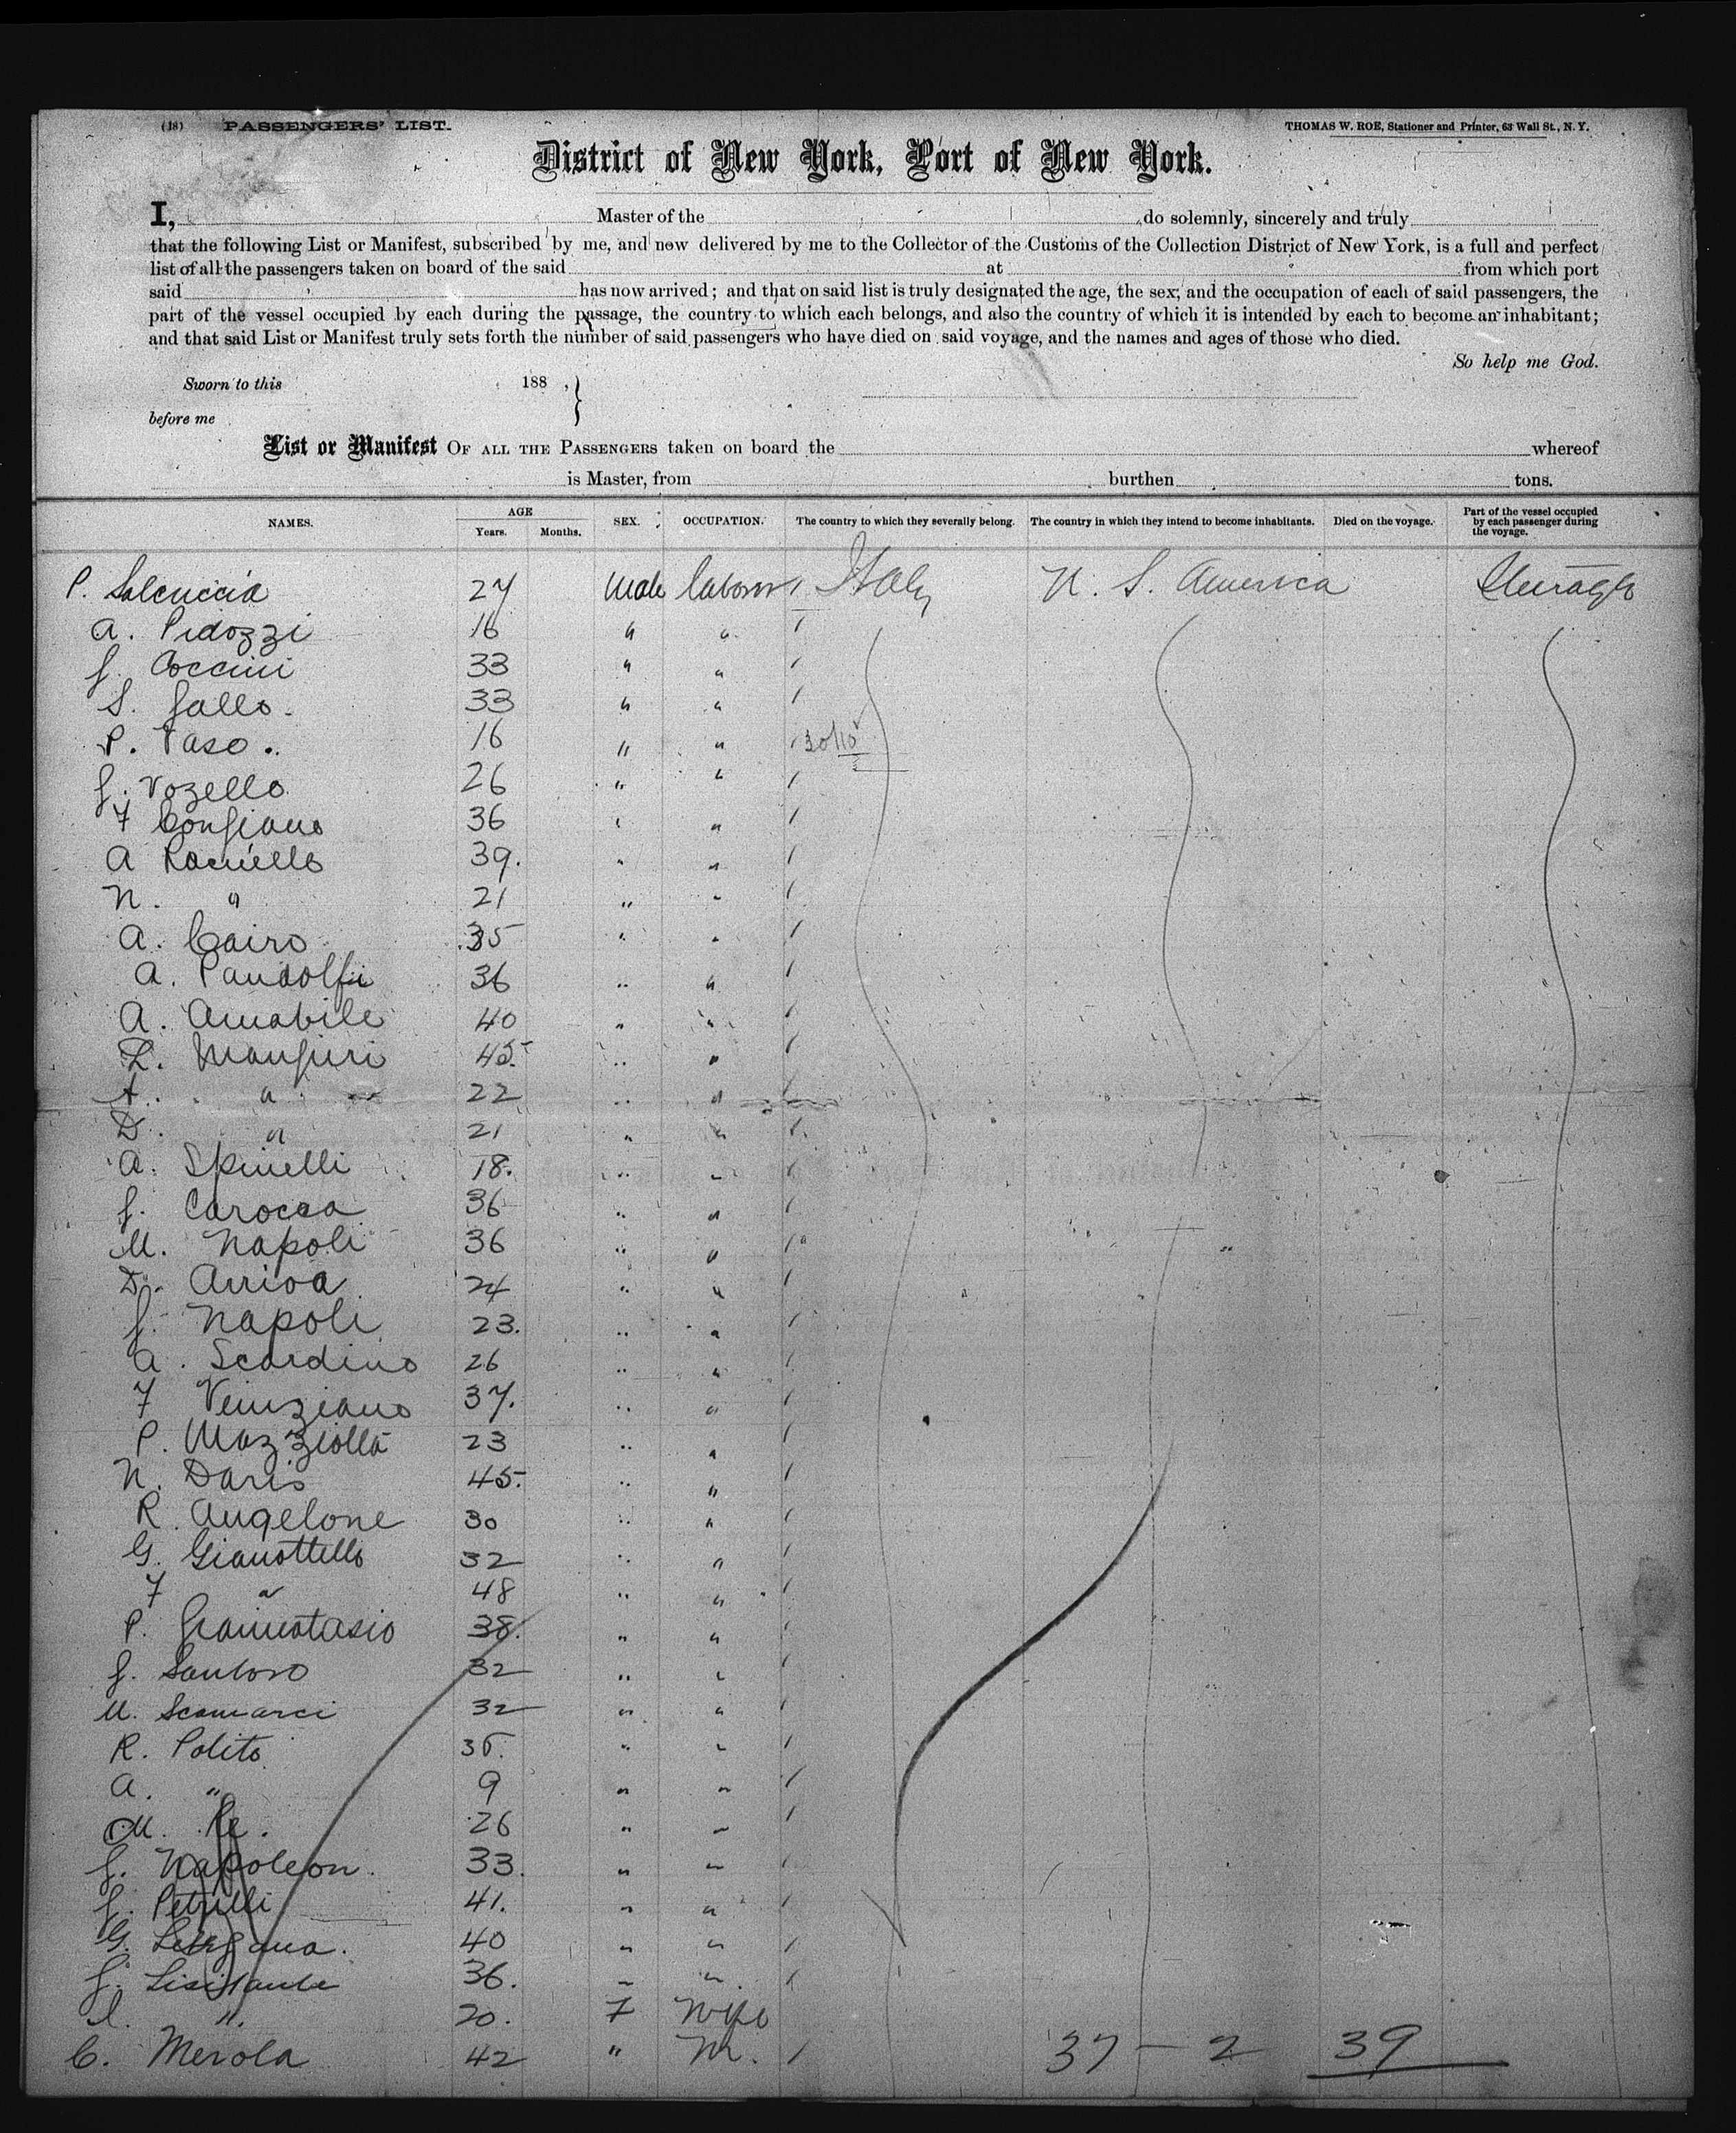 (18) PASSENGERS' LIST. THOMAS W. ROE, Stationer and Printer, 63 Wall St., N. Y.
District of New York, Port of New York.
I, Master of the do solemnly, sincerely and truly
that the following List or Manifest, subscribed by me, and now delivered by me to the Collector of the Customs of the Collection District of New York, is a full and perfect
list of all the passengers taken on board of the said at from which port
said has now arrived; and that on said list is truly designated the age, the sex, and the occupation of each of said passengers, the
part of the vessel occupied by each during the passage, the country to which each belongs, and also the country of which it is intended by each to become an inhabitant;
and that said List or Manifest truly sets forth the number of said passengers who have died on said voyage, and the names and ages of those who died.
So help me God.
Sworn to this 188 , }
before me
List or Manifest OF ALL THE PASSENGERS taken on board the whereof
is Master, from burthen tons.
NAMES. AGE Years. Months. SEX. OCCUPATION. The country to which they severally belong. The country in which they intend to become inhabitants. Died on the voyage. Part of the vessel occupied by each passenger during the voyage.
P. Salcuccia 27 Male labour Italy N. S. America
A. Pidozzi 16 " "
G. Coccini 33 " "
S. Gallo. 33 " "
P. Taso. 16 " "
G. Vozello 26 " "
F 36 " "
A 39. " "
N. " 21 " "
A. Cairo 35 " "
A. Pandolfi 36 " "
A. Amabile 40 " "
L. Mangieri 45. " "
A. " 22 " "
D. " 21 " "
A. Spinelli 18. " "
G. Carocca 36 " "
M. Napoli 36 " "
D. Arrioa 24 " "
G. Napoli 23. " "
A. Scardino 26 " "
F Veniziano 37. " "
P. Mazziolla 23 " "
N. Daris 45. " "
R. Angelone 30 " "
G. Gianottello 32 " "
F " 48 " "
P. 38. " "
G. Santoro 32 " "
M. Scamarci 32 " "
R. Polito 35. " "
A. " 9 " "
M. Re. 26 " "
G. Napoleon. 33. " "
G. Petrilli 41. " "
G. 40 " "
G. 36. " "
". 20. F Wife
C. Merola 42 " M.
37 - 2 39